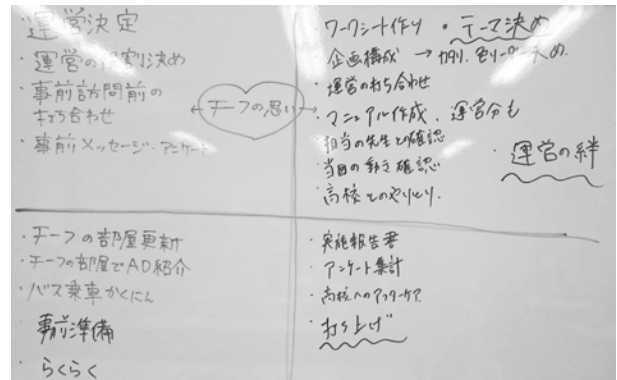 運営決定
・運営の役割決め
・事前訪問前の
打ち合わせ
・事前メッセージ・アンケート
← チーフの思い →
・ワークシート作り
・テーマ決め
・企画構成 → カタリ、
・運営の打ち合わせ
・マニュアル作成、運営分も
担当の先生と確認
・当日の動き確認
・高校とのやりとり.
・運営の絆
・チーフの部屋更新
・チーフの部屋でAD紹介
・バス乗車かくにん
・事前準備
・らくらく
・実施報告書
・アンケート集計
・高校へのアフターケア
・打ち上げ